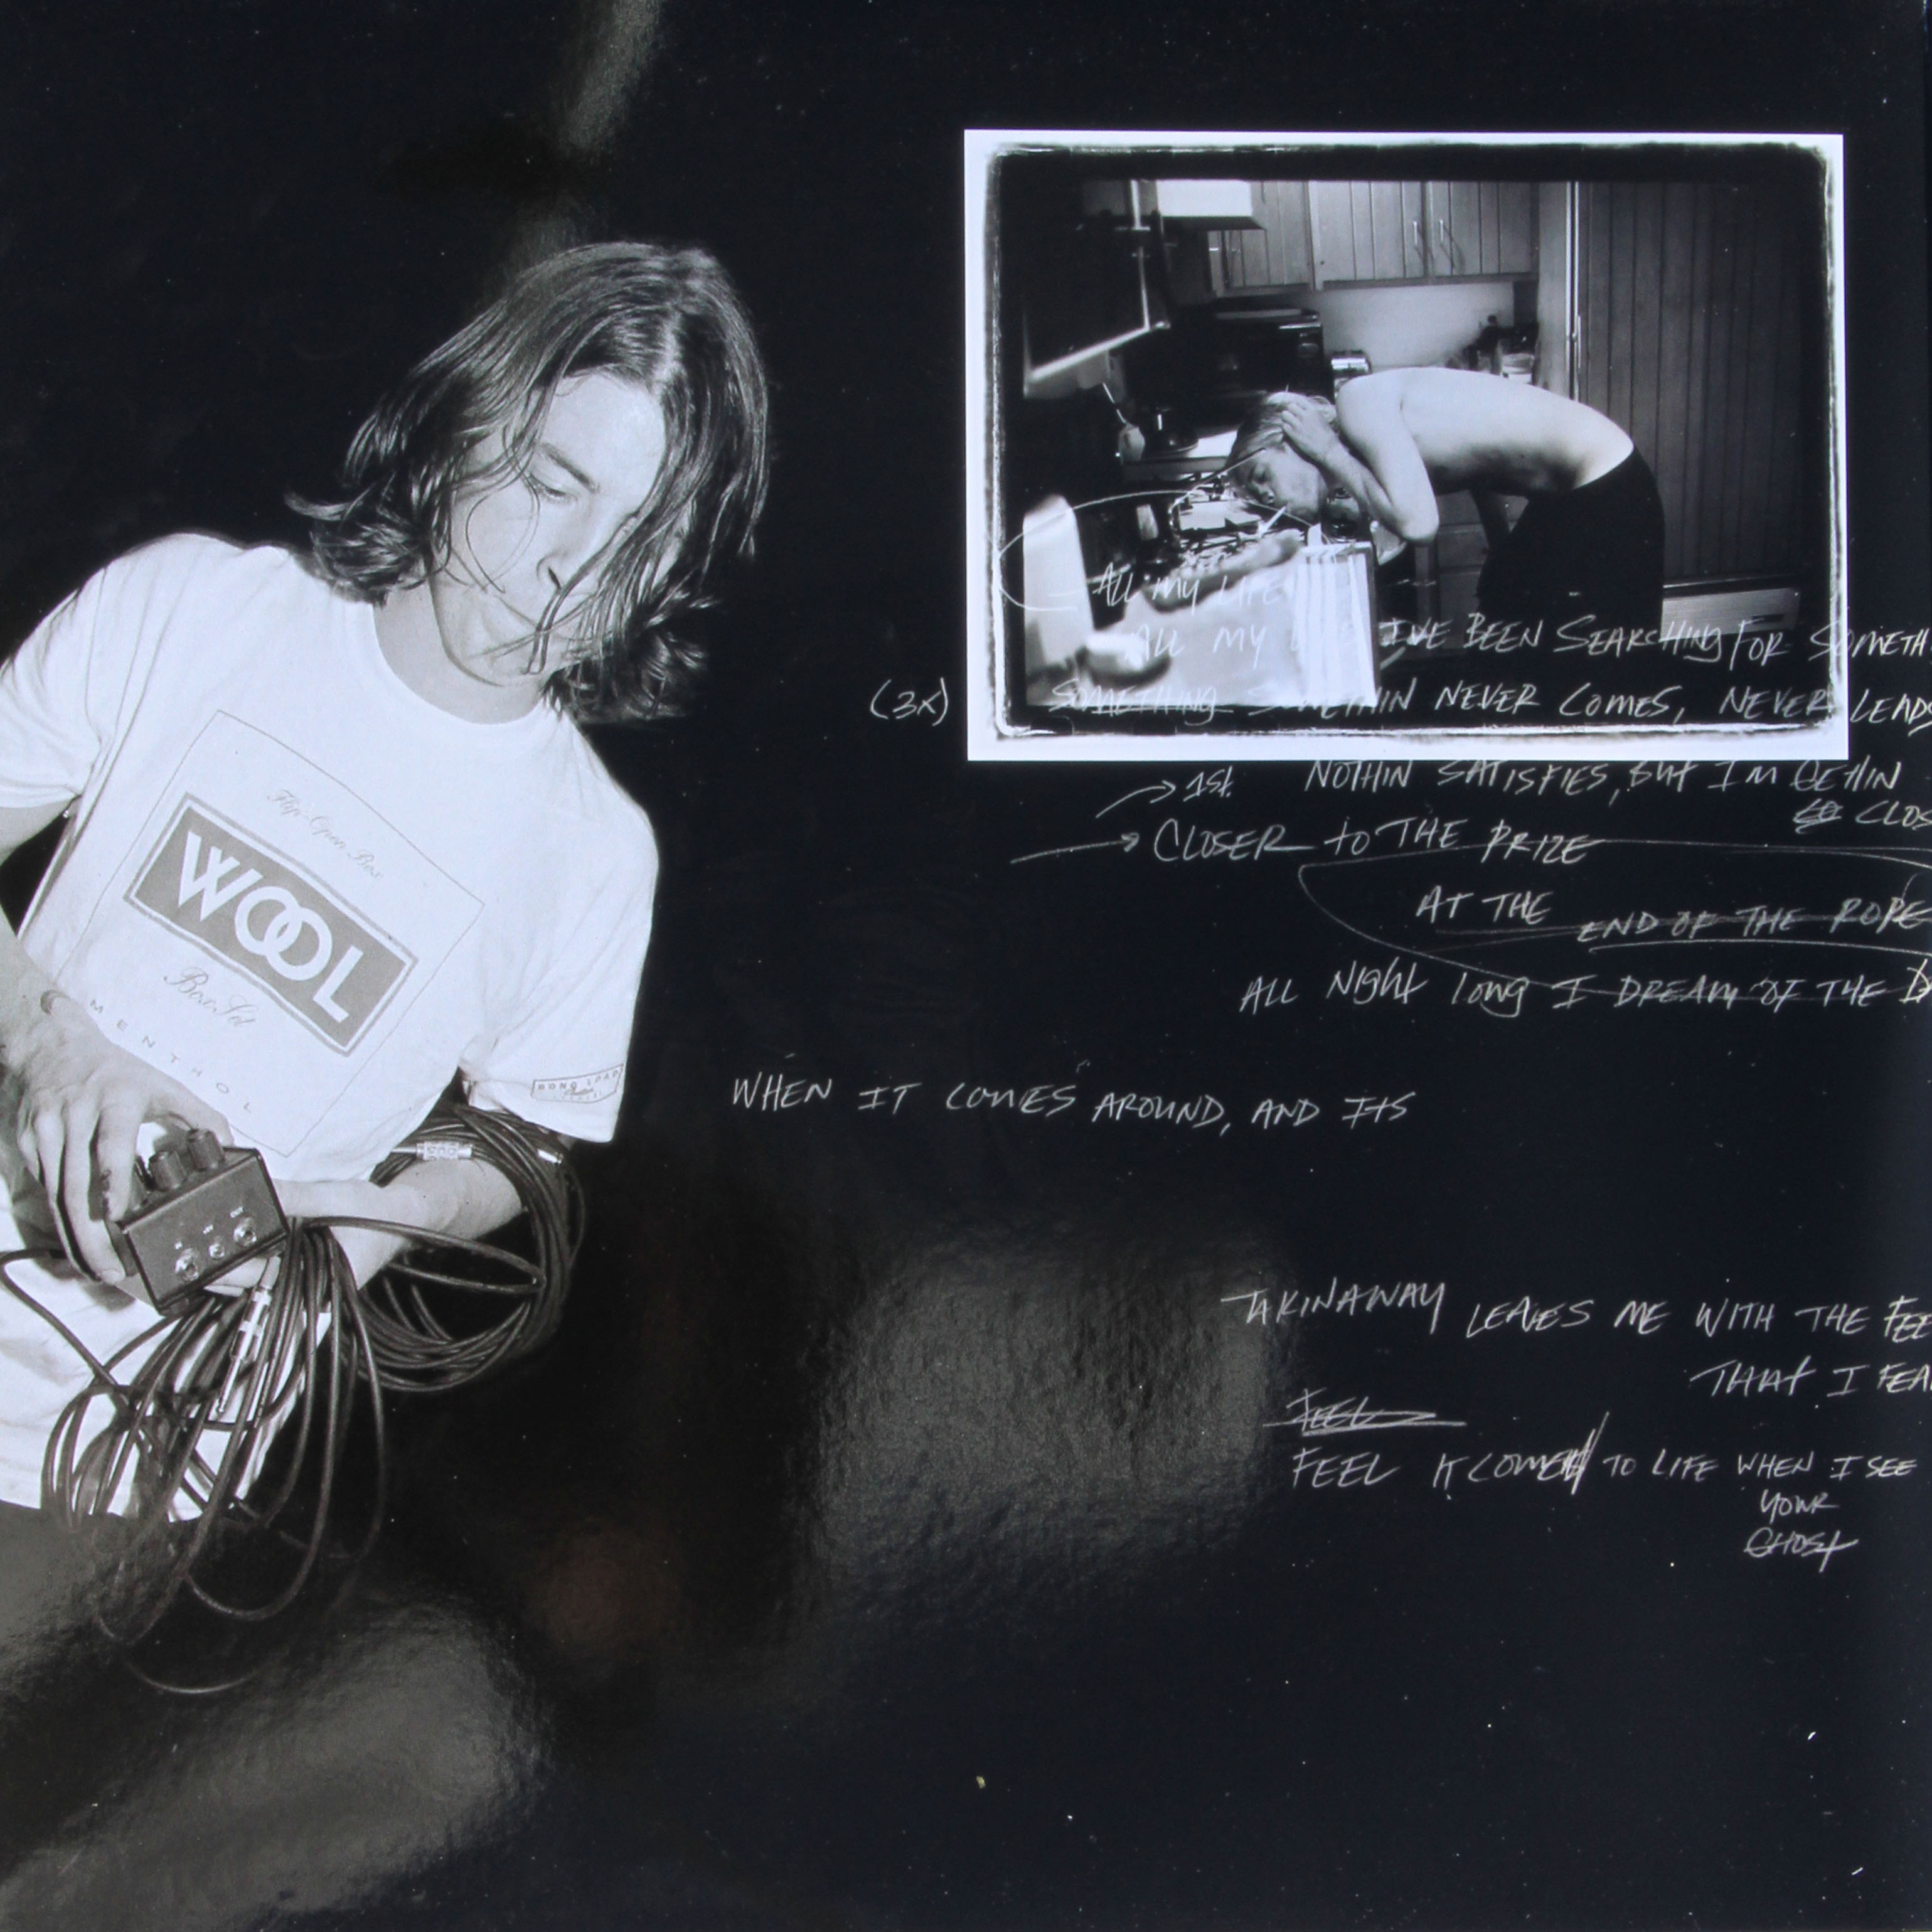 Flip-Open Box
WOOL
Box Set
MENTHOL
BONG LOAD
IN
OUT
ALL MY LIFE
ALL MY I'VE BEEN SEARCHING FOR SOMETH
(3x) SOMETHING SOMETHIN NEVER COMES, NEVER LEADS
→ 1St. NOTHIN SATISFIES, BUT I'M GETTIN
CLOS
→ CLOSER to THE PRIZE
AT THE END OF THE ROPE
ALL NIGHT LONG I DREAM OF THE D
WHEN IT COMES AROUND, AND ITS
TAKINAWAY LEAVES ME WITH THE FEE
THAT I FEA
FEEL
FEEL IT COME TO LIFE WHEN I SEE
YOUR
GHOST